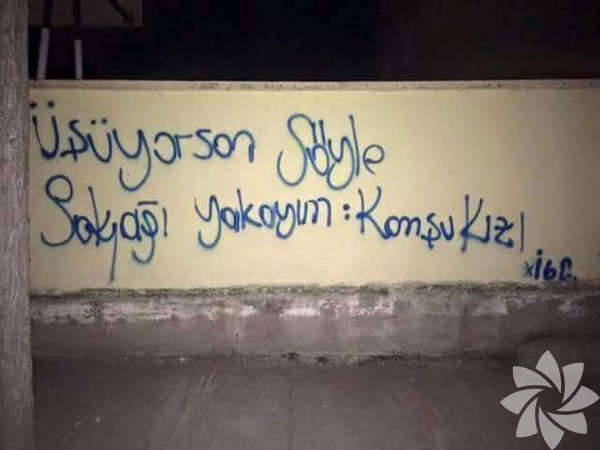 Üşüyorsan Söyle
Sokağı yakayım : Komşu Kızı